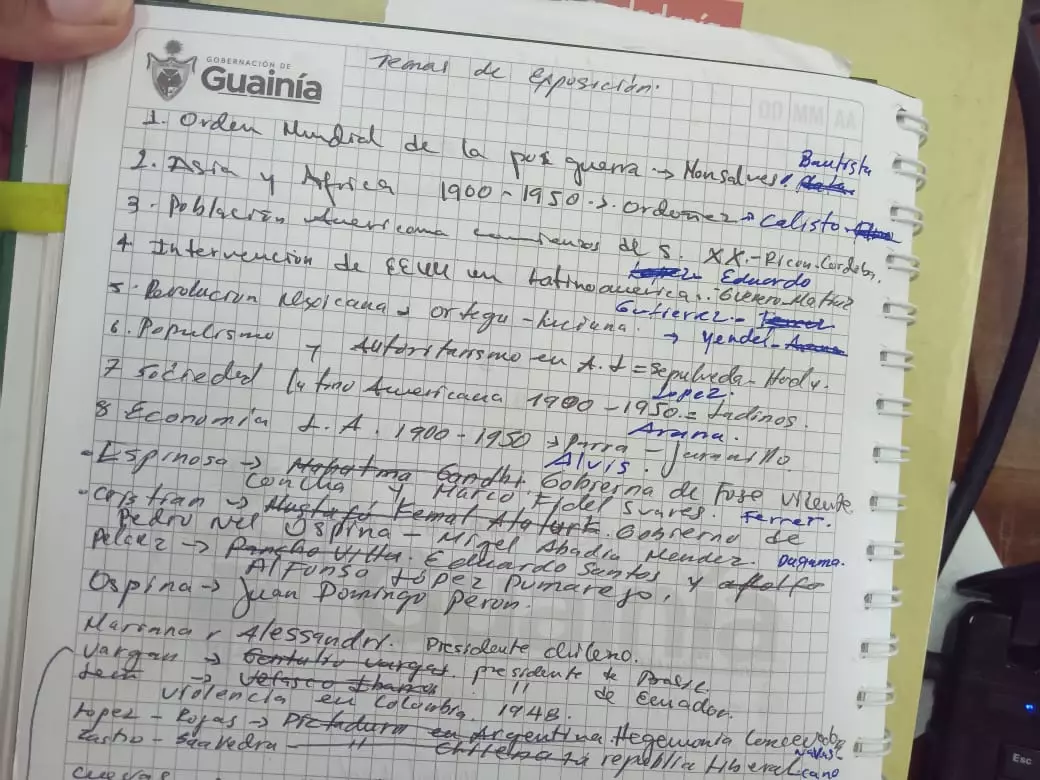 GOBERNACIÓN DE
Guainía
AA MM DD
Temas de exposición.
1. Orden Mundial de la pos guerra → Monsalve, Bautista
2. Asia y Africa 1900 - 1950 → Ordoñez → Calisto
3. Población Americana comienzos de S. XX. - Ricon. Cordoba,
4. Intervención de EEUU en Latinoamerica. Eduardo
5. Revolucion Mexicana → Ortega - Luciana. Gutierrez -
6. Populismo y Autoritarismo en A. L = Sepulveda - Hody. → Yendel -
7 Sociedad Latino Americana 1900 - 1950 = Ladinos. Lopez.
8 Economía L. A. 1900 - 1950 → Parra - Jaramillo. Arana.
- Espinosa → Mahatma Gandhi Gobierna de Jose Vicente Alvis.
Concha y Marco Fidel Suares. Ferrer.
- Cristian → Mustafa Kemal Ataturk. Gobierno de
Pedro Nel Ospina - Migel Abadia Mendez. Daguma.
Pelaez → Pancho Villa. Eduardo Santos y
Alfonso López Pumarejo,
Ospina → Juan Domingo Peron.
Marianna r Alessandri. Presidente chileno.
Vargan → Getulio Vargas. presidente de Brasil.
→ Velasco Ibarra " de Ecuador.
violencia en Colombia 1948.
Lopez - Rojas → Dictadura en Argentina. Hegemonia Conservadora
- Saavedra — " Chilena la republica liberal
Cuevas
Esc